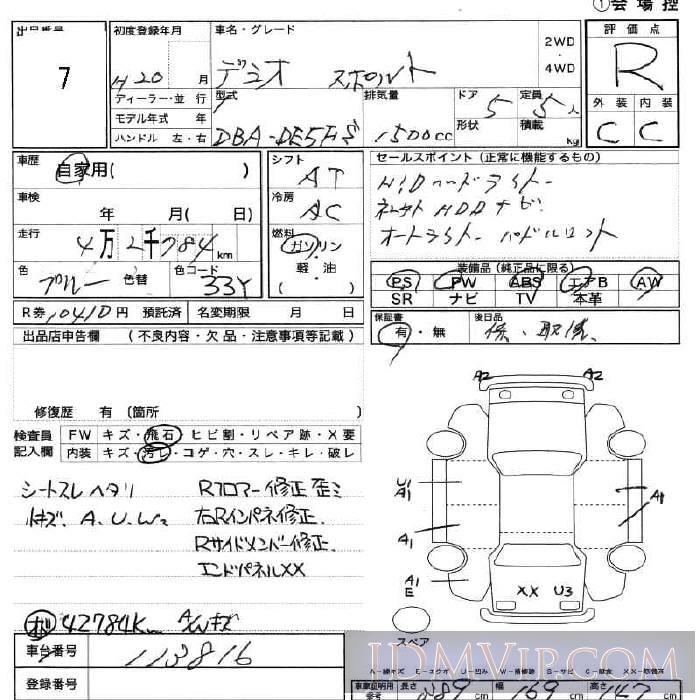 ①会場控
出品番号 初度登録年月 車名・グレード 2WD・4WD 評価点
7 H20 月 デミオ スポルト R
ディーラー・並行 型式 排気量 ドア 5 定員 5人 外装 内装
モデル年式 年 形状 積載 kg C C
ハンドル 左・右 DBA-DE5FS 1500cc
車歴 自家用( ) シフト AT セールスポイント(正常に機能するもの)
車検 年 月( 日) 冷房 AC HIDヘッドライト
走行 4万2千784km 燃料 ガソリン・軽油・( ) HDDナビ
オートライト パドルシフト
色 ブルー 色替 色コード 33Y
装備品(純正品に限る)
PS PW ABS エアB AW
SR ナビ TV 本革
R券 10410円 預託済 名変期限 月 日
保証書 有・無 後日品 保、取説、
出品店申告欄 (不良内容・欠品・注意事項等記載)
修復歴 有(箇所
検査員記入欄 FW キズ・飛石・ヒビ割・リペア跡・X要
内装 キズ・汚レ・コゲ・穴・スレ・キレ・破レ
A2 A2
U1 A1 A1
A1
A1 E XX U3
シートスレ ヘタリ Rフロアー修正 歪ミ
A.U.W2 右Rインパネ修正.
Rサイドメンバー修正.
エンドパネルXX
42784Km AWキズ
スペア
車台番号 113816
A-線キズ E-エクボ U-凹み W-補修跡 S-サビ C-腐食 XX-交換済
登録番号 車庫証明用参考 長さ cm 幅 169 cm 高さ 147 cm
JDMVIP.COM